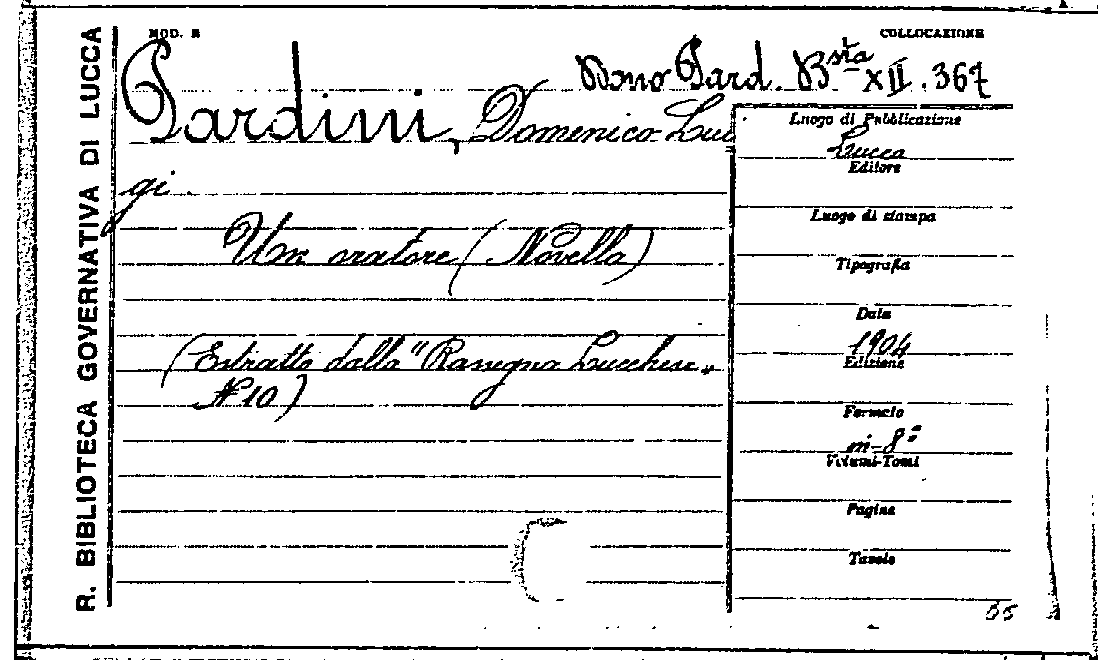 R. BIBLIOTECA GOVERNATIVA DI LUCCA
MOD. B
COLLOCAZIONE
Dono Pard. Bsta XII. 367
Pardini, Domenico Lui
gi.
Un oratore (Novella)
(Estratto dalla "Rassegna Lucchese"
N° 10)
Luogo di Pubblicazione
Lucca
Editore
Luogo di stampa
Tipografia
Data
1904
Edizione
Formato
in-8°
Volumi-Tomi
Pagine
Tavole